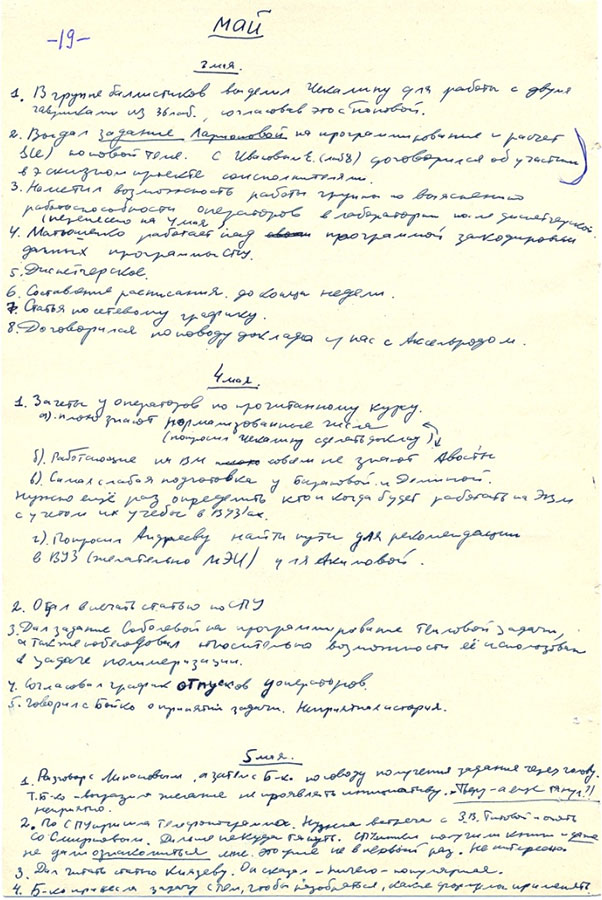 -19-
МАЙ
3 мая.
1. В группе баллистиков выделил Чекалину для работы с двумя
из 36 лаб., согласовав это с
2. Выдал задание Ларионовой на программирование и расчет
по новой теме. С договорился об участии
в эскизном проекте соисполнителями.
3. Наметил возможность работы группы по выяснению
работоспособности операторов в лаборатории
(перенесено на 4 мая)
4. Матюшенко работает над программой закодировки
данных программы СПУ.
5. Диспетчерское.
6. Составление расписания до конца недели.
7. Статья по сетевому графику.
8. Договорился по поводу доклада у нас с Аксельродом.
4 мая.
1. Зачеты у операторов по прочитанному курсу.
а). плохо знают нормализованные числа
(попросил Чекалину сделать доклад)
б). Работающие на ВМ совсем не знают Авосты
в). Самая слабая подготовка у Барановой и Деминой.
Нужно ещё раз определить кто и когда будет работать на ЭВМ
с учетом их учебы в ВУЗ'ах.
г). Попросил Андрееву найти пути для рекомендации
в ВУЗ (желательно МЭИ) для Акимовой.
2. Отдал в печать статью по СПУ
3. Дал задание Соболевой на программирование тепловой задачи,
а также побеседовал относительно возможности её использовать
в задаче полимеризации.
4. Согласовал график отпусков у операторов.
5. Говорил с Бойко о принятии задачи. Неприятная история.
5 мая.
1. Разговор с , а затем с Б-ко по поводу получения задания через голову.
Т. Б-ко выразила желание не проявлять инициативу.
неприятно.
2. По СПУ пришла телефонограмма. Нужна встреча с З.В. Титовой - опять
со Смирновым. Дальше некуда тянуть. получили книги и даже
не дали ознакомиться мне. Это уже не в первый раз. Не интересно
3. Дал читать статью Князеву. Он сказал - ничего - популярная.
4. Б-ко принесла задачу с тем, чтобы разобраться, какие формулы применять.